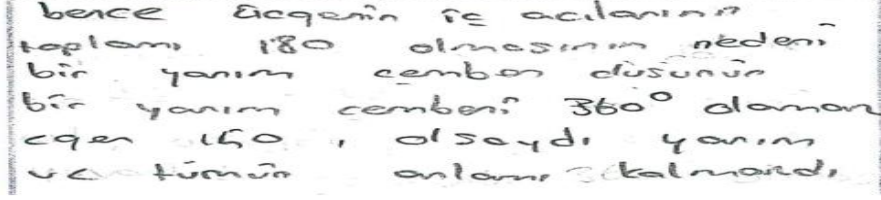 bence üçgenin iç açılarının
toplamı 180 olmasının nedeni
bir yarım cember düşünün
bir yarım cemberi 360° olaman
eger 160 , olsaydı yarım
ve tümün anlamı kalmazdı